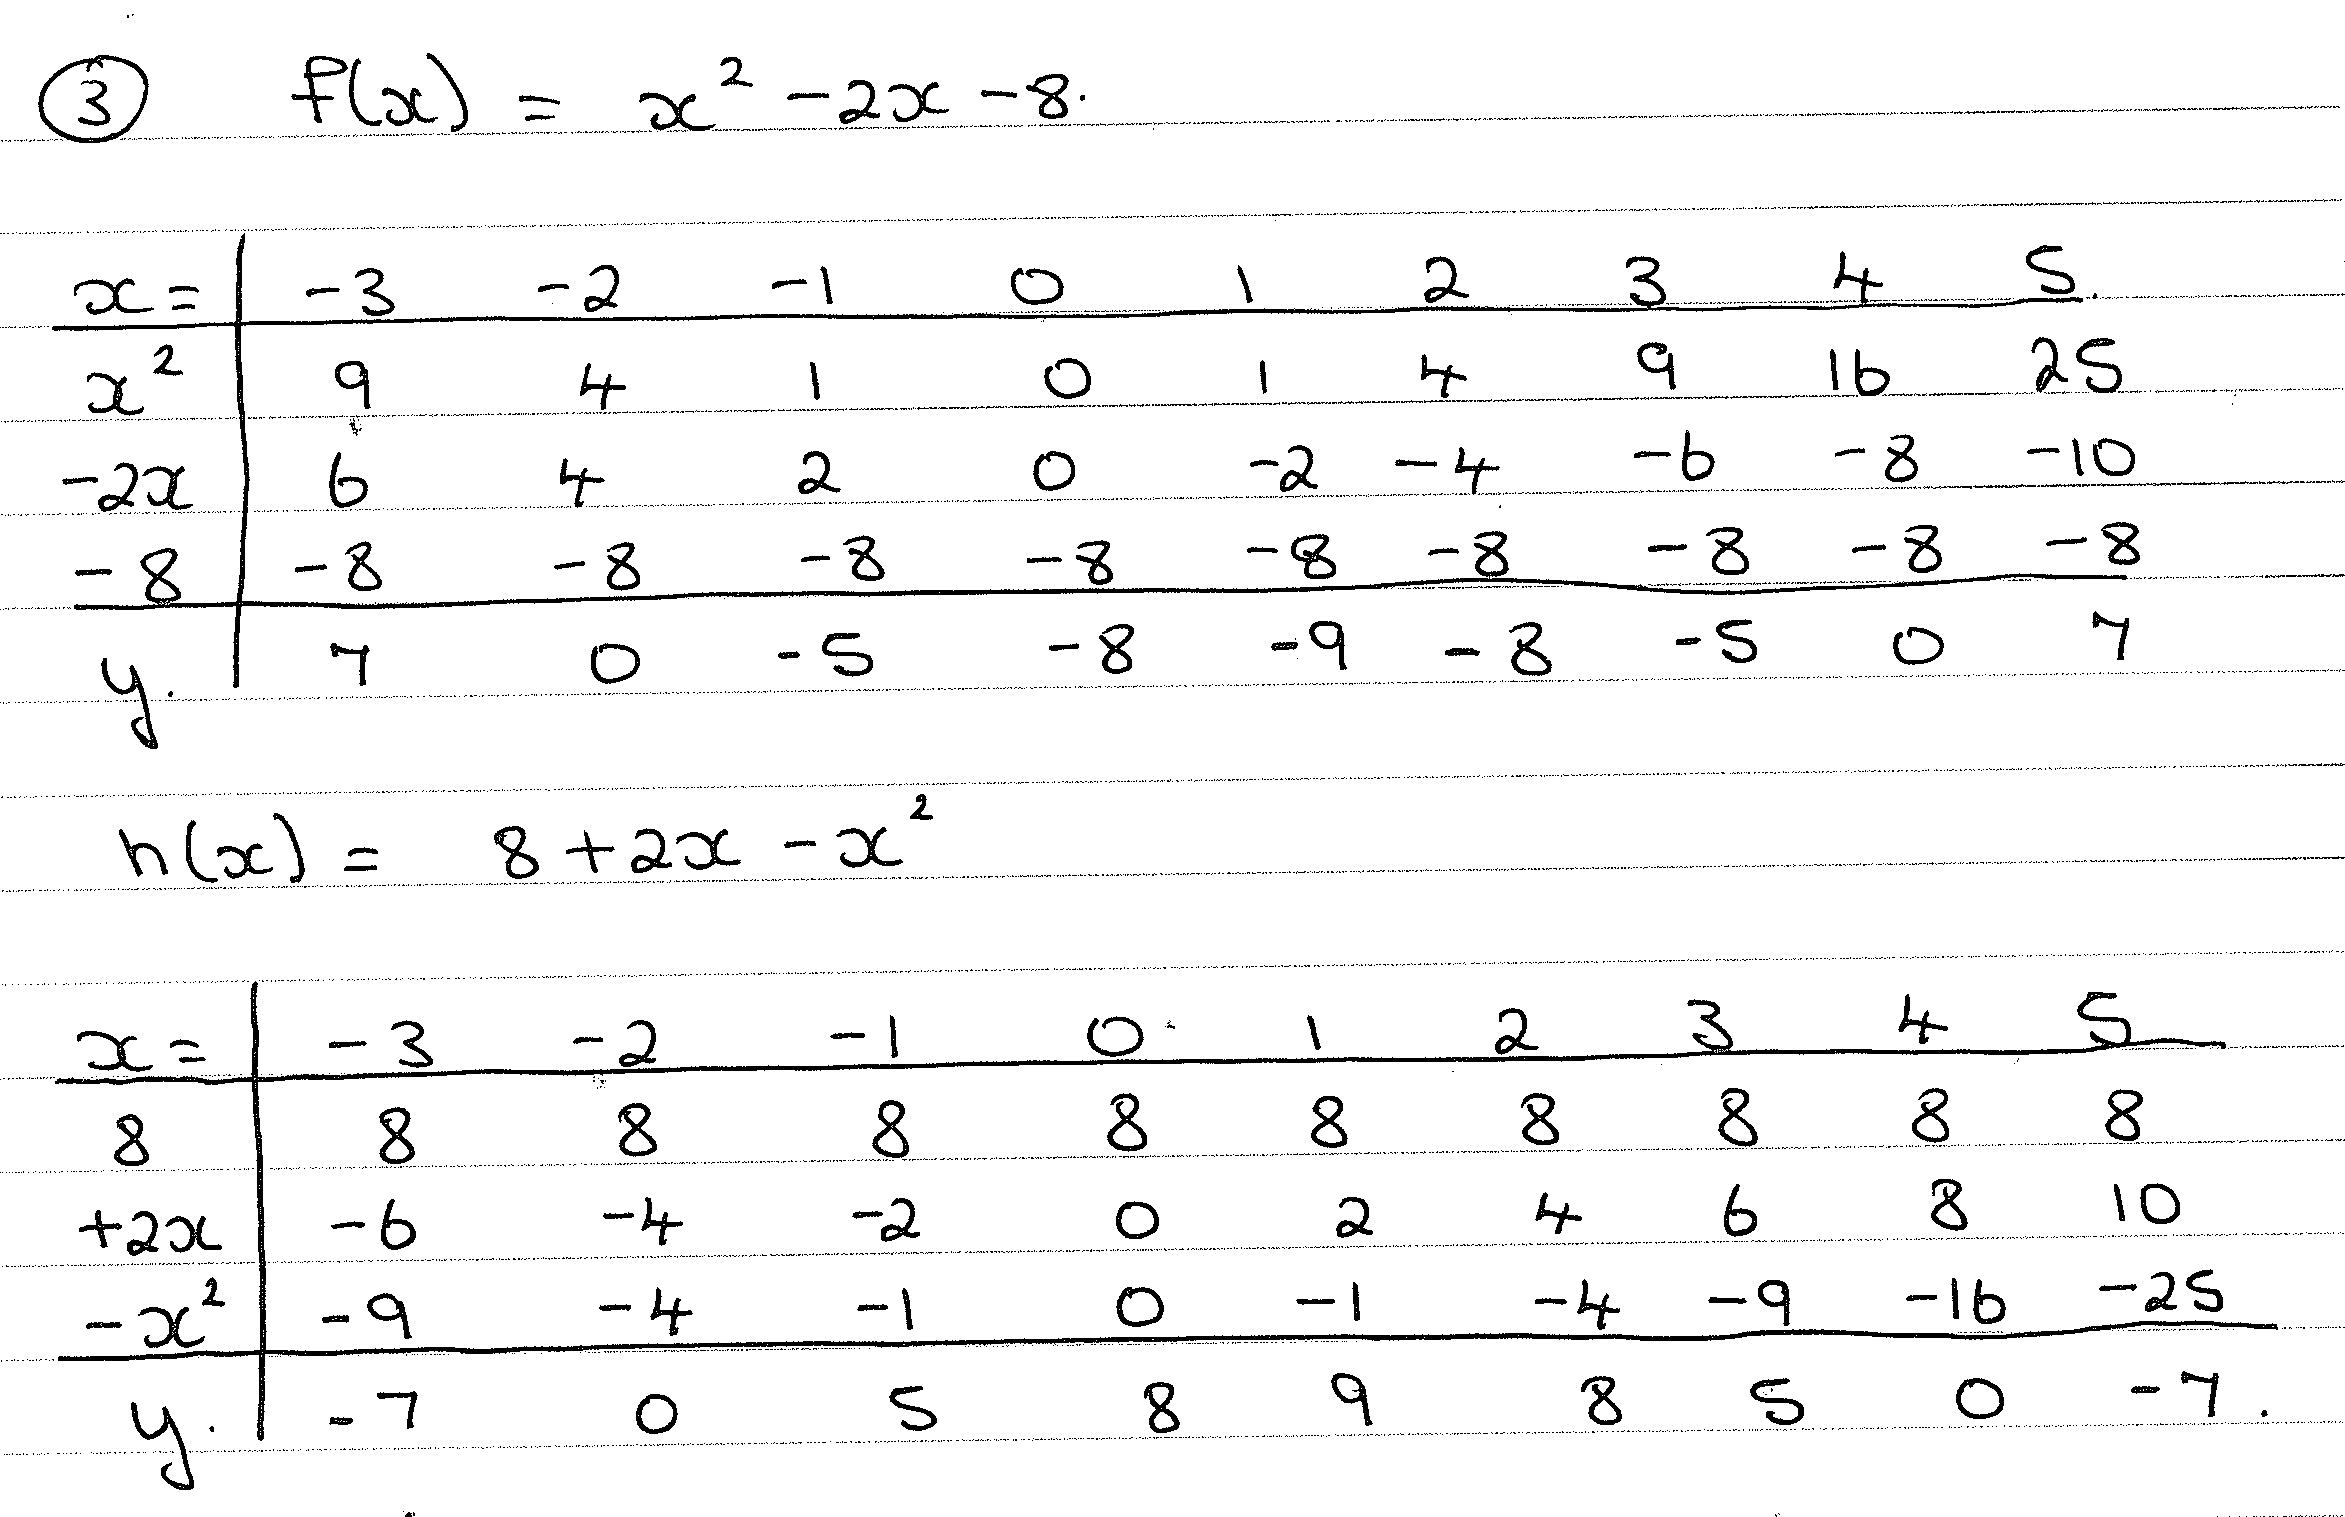 3 f(x) = x² -2x -8.
x= -3 -2 -1 0 1 2 3 4 5.
x² 9 4 1 0 1 4 9 16 25
-2x 6 4 2 0 -2 -4 -6 -8 -10
-8 -8 -8 -8 -8 -8 -8 -8 -8 -8
y. 7 0 -5 -8 -9 -8 -5 0 7
h(x) = 8 +2x -x²
x= -3 -2 -1 0 1 2 3 4 5
8 8 8 8 8 8 8 8 8 8
+2x -6 -4 -2 0 2 4 6 8 10
-x² -9 -4 -1 0 -1 -4 -9 -16 -25
y. -7 0 5 8 9 8 5 0 -7.